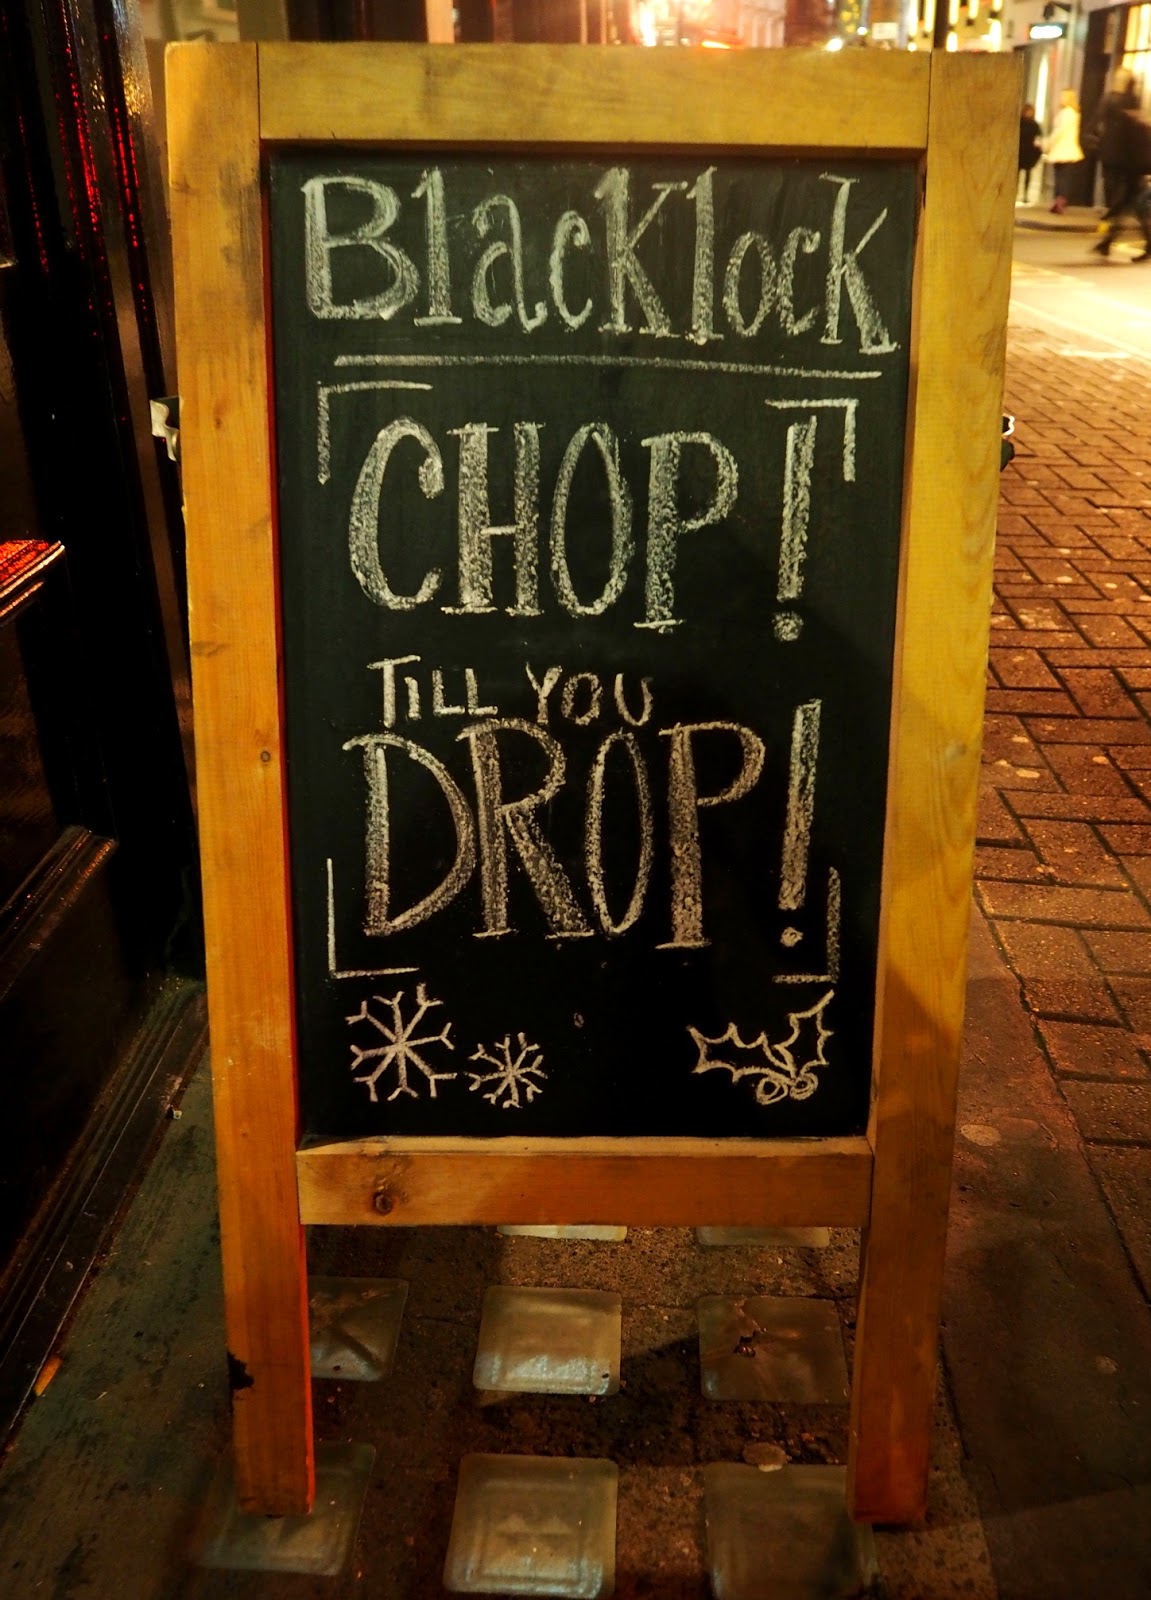 Blacklock
CHOP!
TILL YOU
DROP!